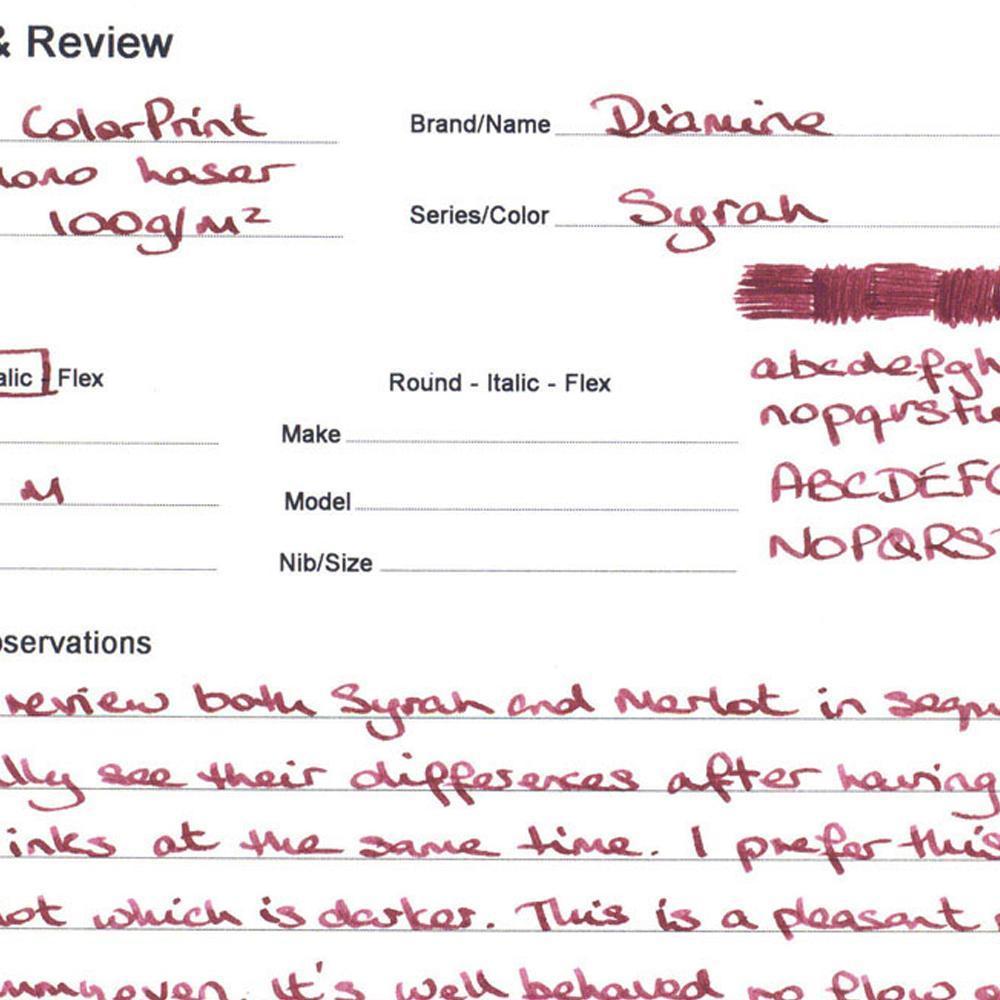 & Review
ColorPrint
Brand/Name Diamine
mono laser
100g/m²
Series/Color Syrah
alic - Flex
Round - Italic - Flex
abcdefgh
nopqrstu
Make
M
Model
ABCDEFG
NOPQRST
Nib/Size
bservations
review both Syrah and Merlot in sequ
lly see their differences after having
inks at the same time. I prefer this
lot which is darker. This is a pleasant
even. It's well behaved no flow